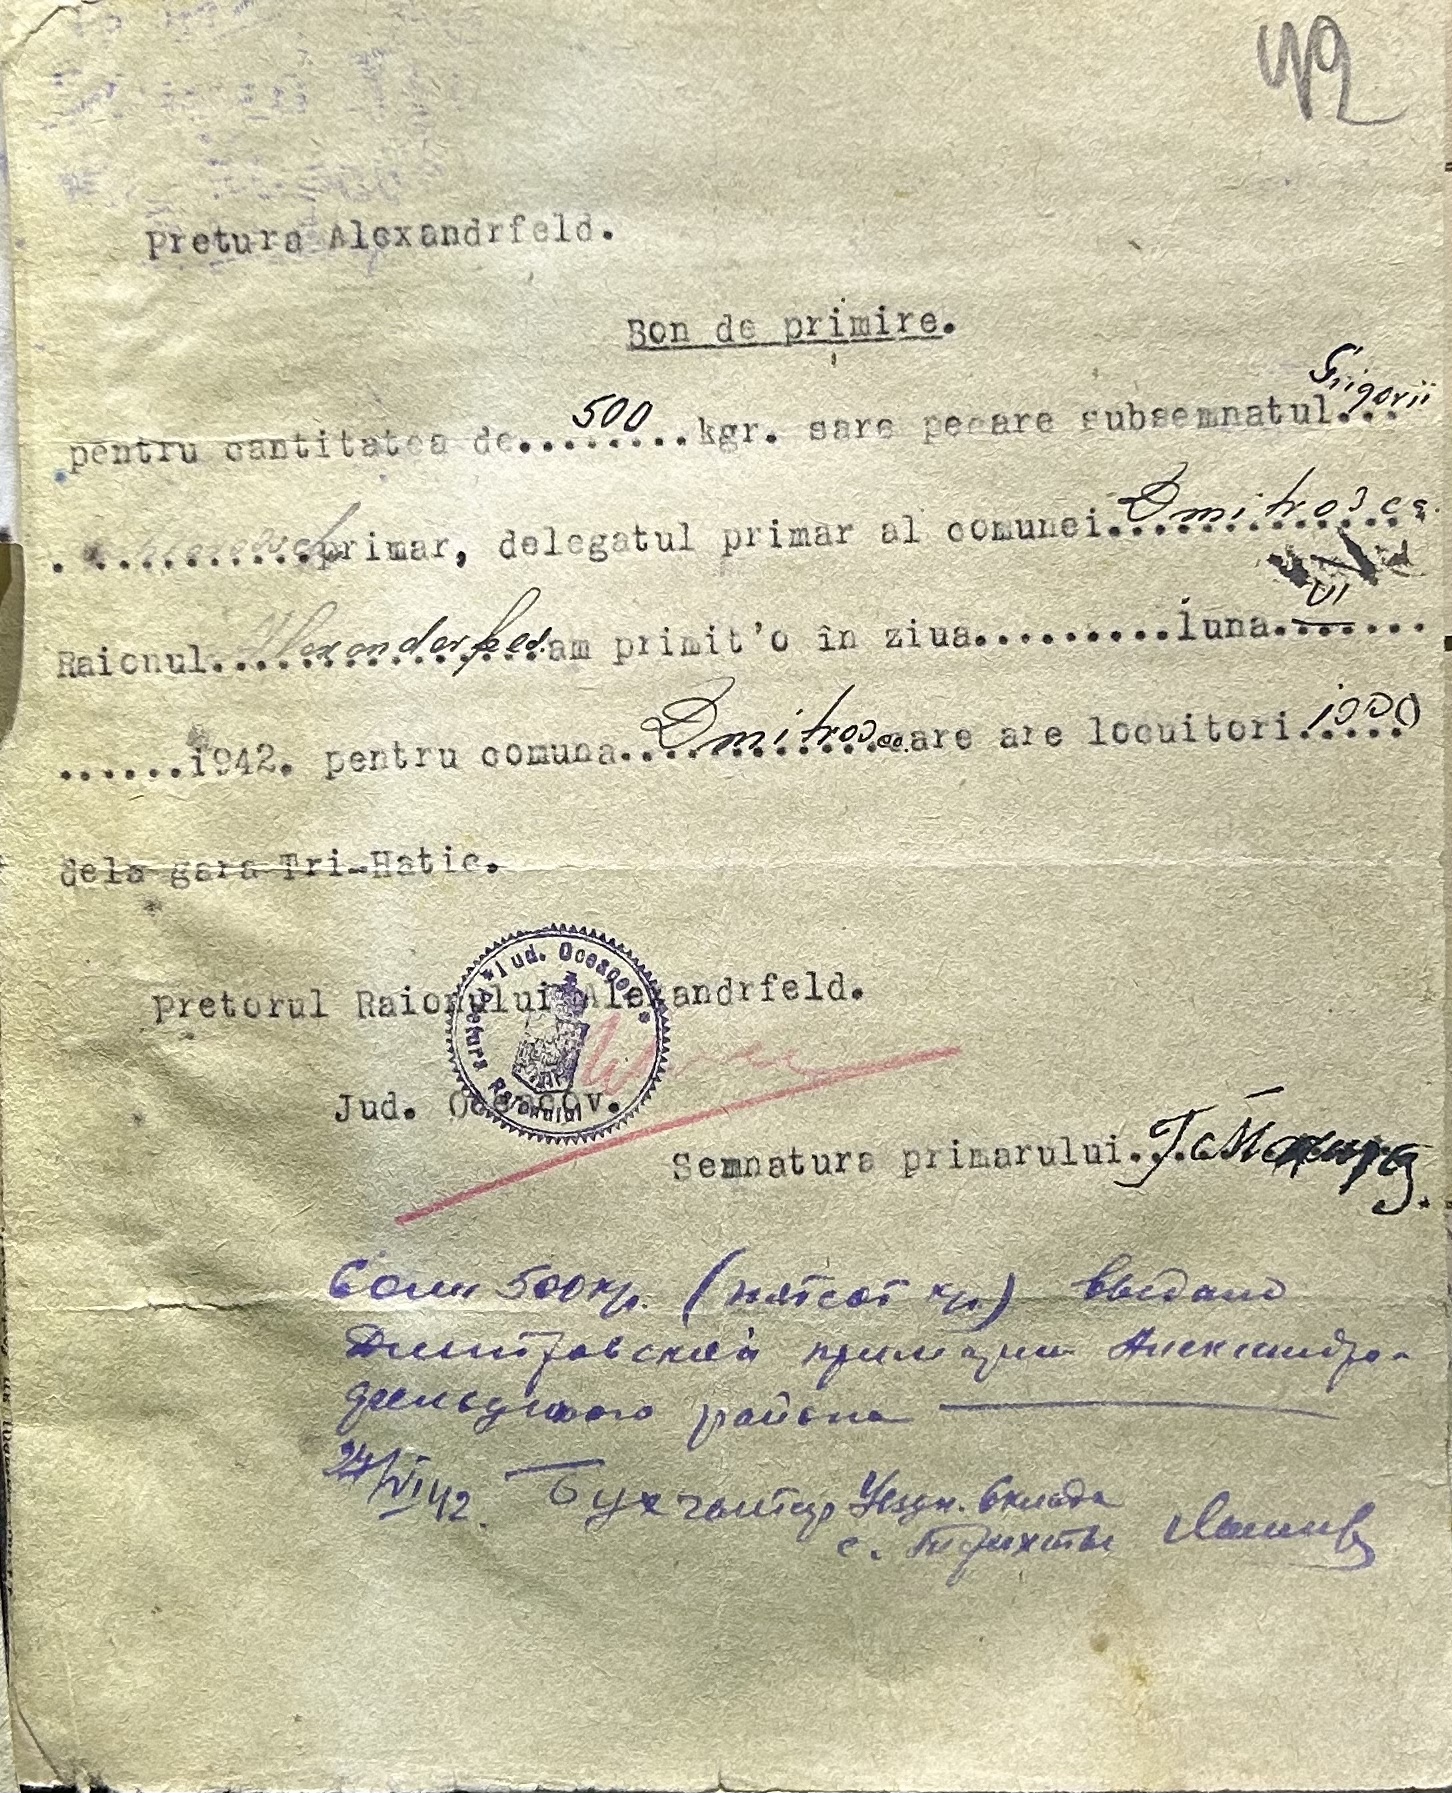 42
Pretura Alexandrfeld.
Bon de primire.
pentru cantitatea de...500.....kgr. sare pecare subsemnatul Grigorii
primar, delegatul primar al comunei Dmitrovca
Raionul Alexanderfeld am primit'o în ziua.........luna VI
......1942. pentru comuna Dmitrovca care are locuitori
dela gara Tri-Hatic.
*Jud. Oceacov* Pretura Raionului
Pretorul Raionului Alexandrfeld.
Jud. Oceacov.
Semnatura primarului...Г.
Соли 500 кгр. (пятсот кгр) выдано
Дмитровской примарии Александро-
фельдского района
24/VI 42. Бухгалтер Уездн. Склада
с. Трихаты